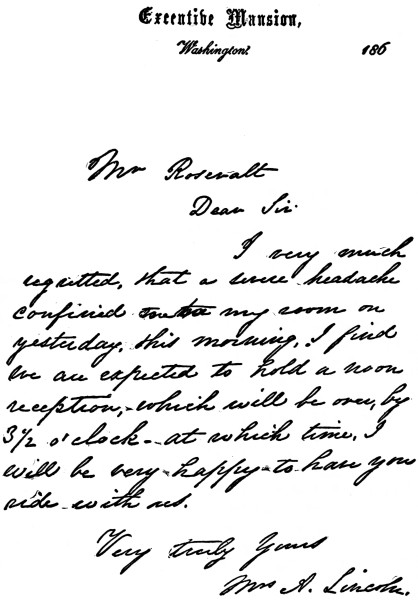 Executive Mansion,
Washington. 186
Mr Rosevalt
Dear Sir.
I very much
regretted, that a severe headache
confined me to my room on
yesterday, this morning, I find
we are expected to hold a noon
reception,-which will be over, by
3 1/2 o'clock - at which time, I
will be very happy to have you
ride with us.
Very truly Yours
Mrs A. Lincoln.